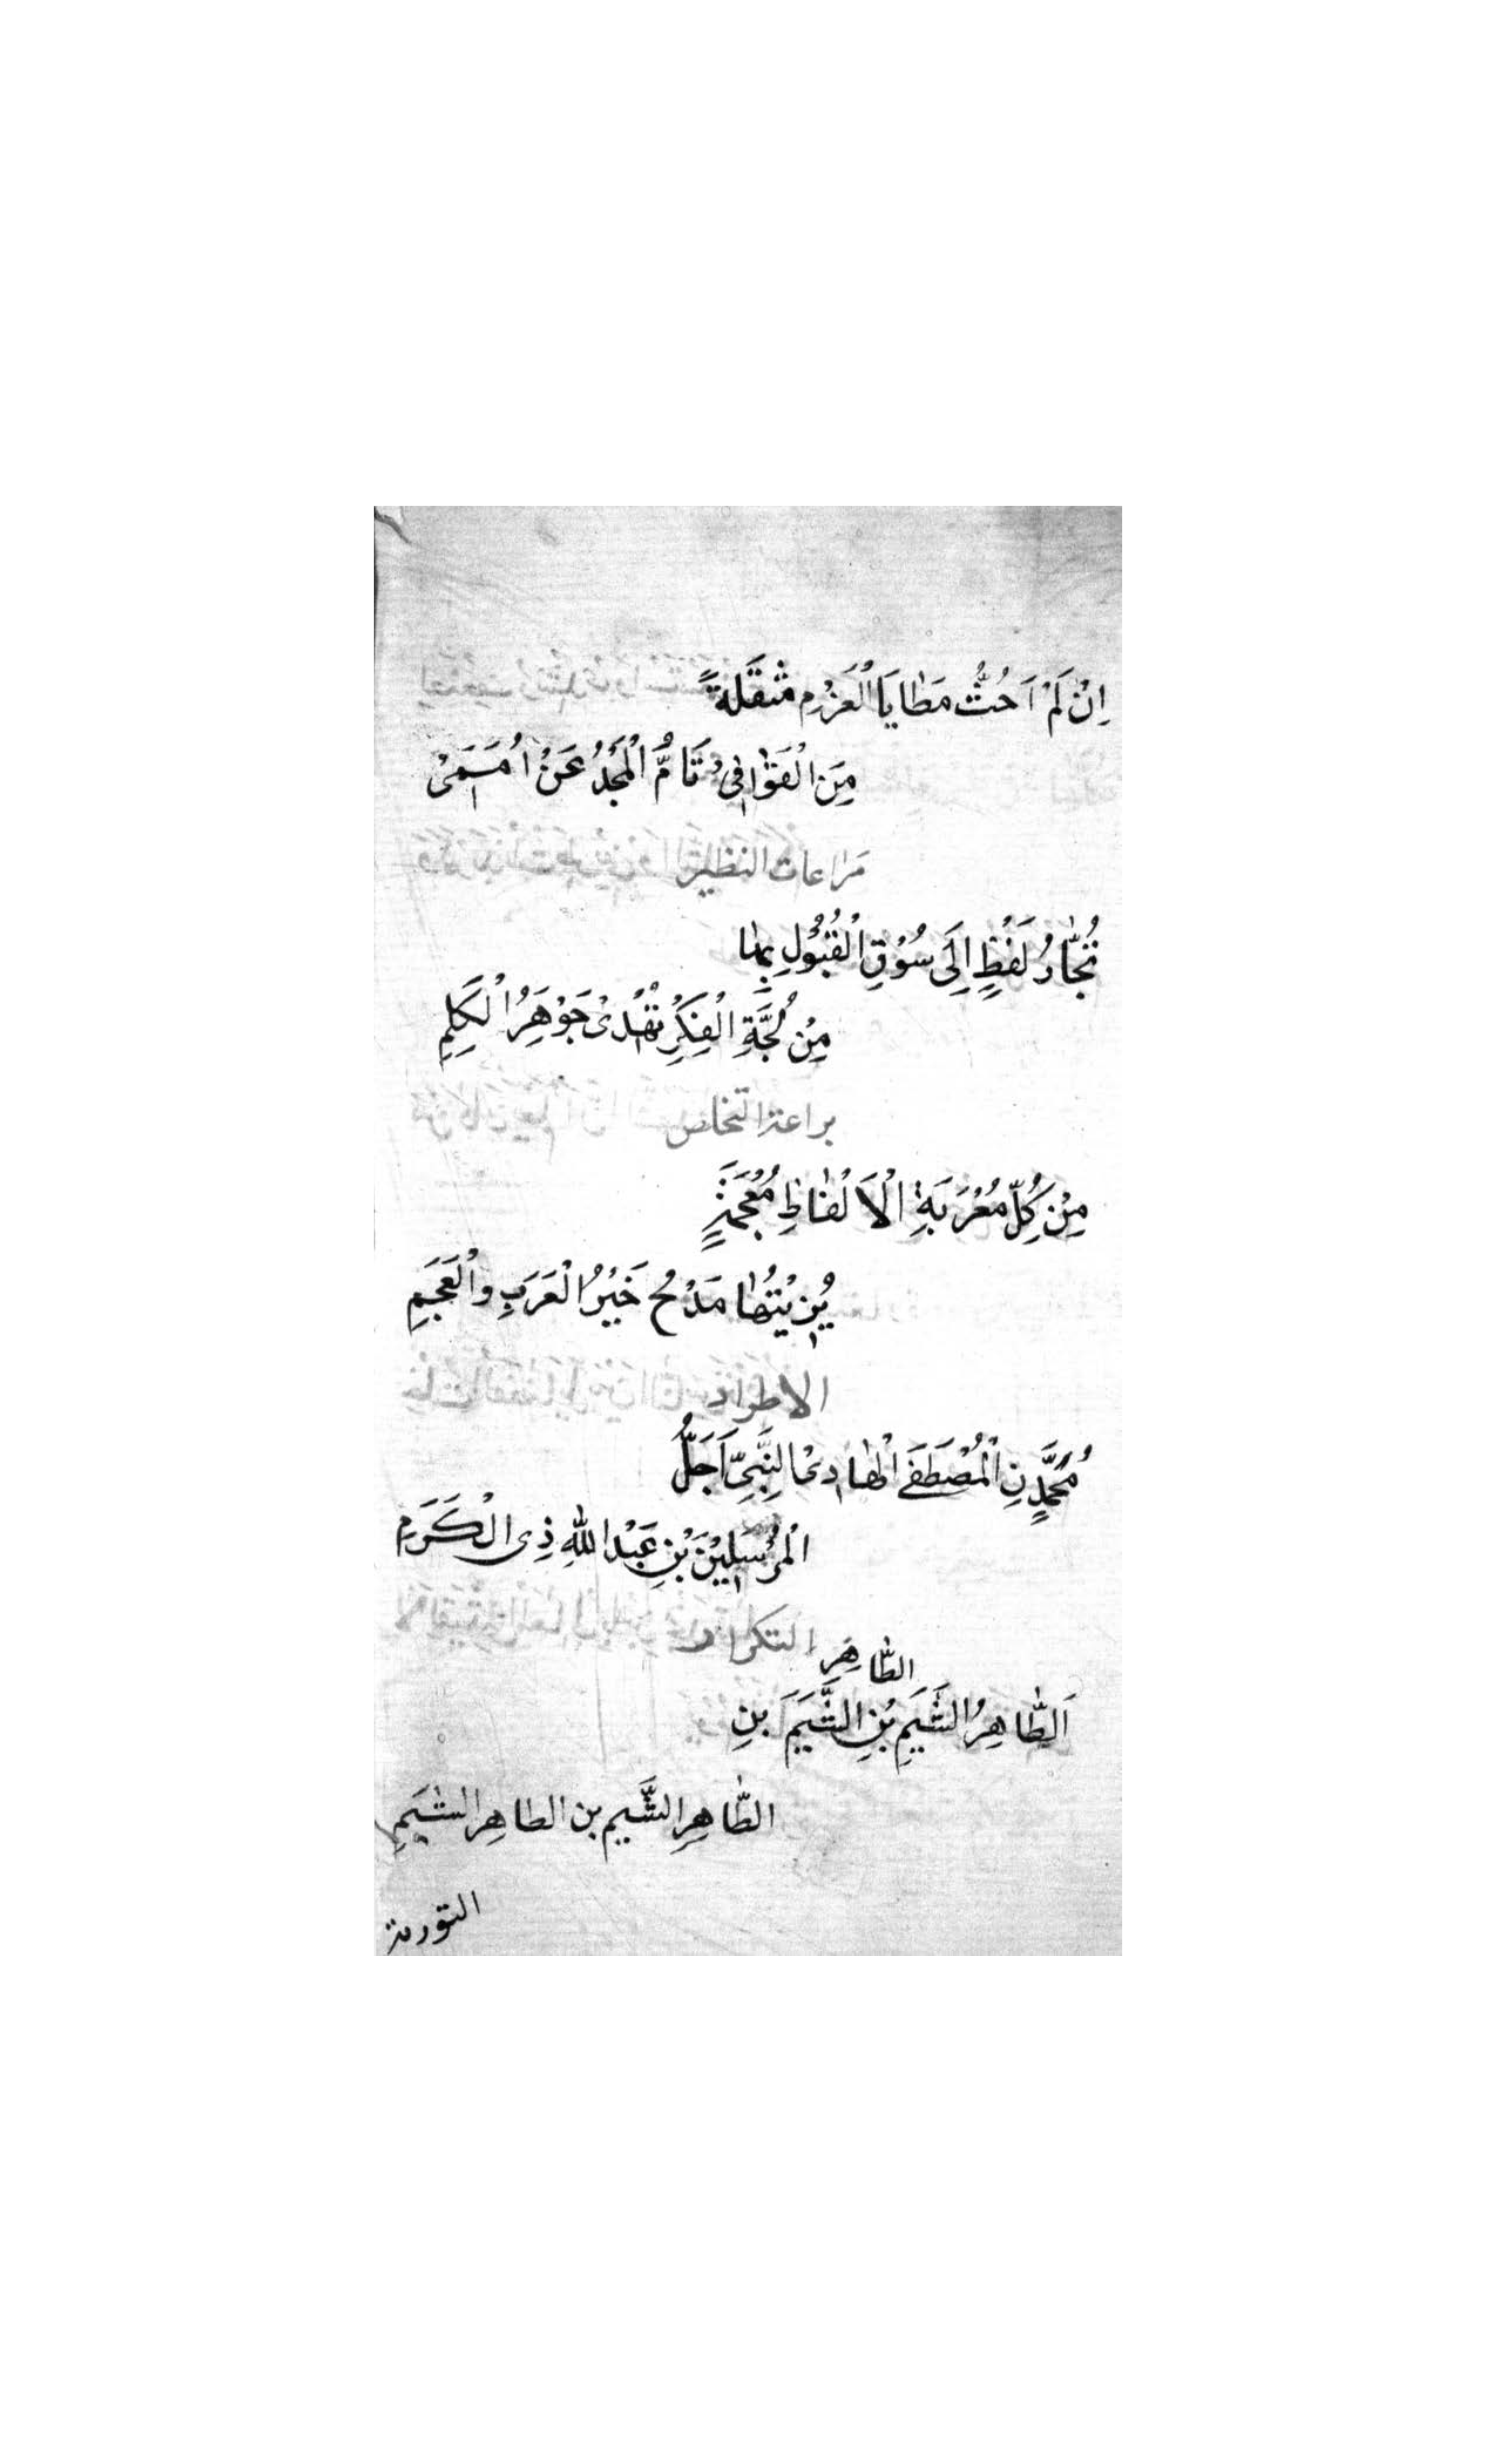 اِنْ لَمْ اَحُثُّ مَطَايَا الْعَزْمِ مُثْقَلَةً
مِنَ الْقَوَافِيْ تَامُّ الْمَجْدُ عَنْ اُمَمِيْ
مراعات النظير
تُجَّارُ لَفْظٍ اِلَى سُوْقِ الْقُبُوْلِ بِهَا
مِنْ لُجَّةِ الْفِكْرِ تُهْدِىْ جَوْهَرُ الْكَلِمِ
براعة التخلص
مِنْ كُلِّ مُعْرَبَةِ الْاَلْفَاظِ مُعْجَمَةٍ
يُزِيْنُهَا مَدْحُ خَيْرُ الْعَرَبِ وَالْعَجَمِ
الاطراد
مُحَمَّدٍنِ الْمُصْطَفَى الْهَادِىْ النَّبِيِّ اَجَلُّ
الْمُرْسَلِيْنَ بْنِ عَبْدِ اللهِ ذِى الْكَرَمِ
التكرار
الطَّاهِرِ
اَلطَّاهِرُ الشِّيَمِ بْنِ الشِّيَمِ بنِ
الطَّاهِرِ الشِّيم بن الطاهِر الشِّيَمِ
التورية